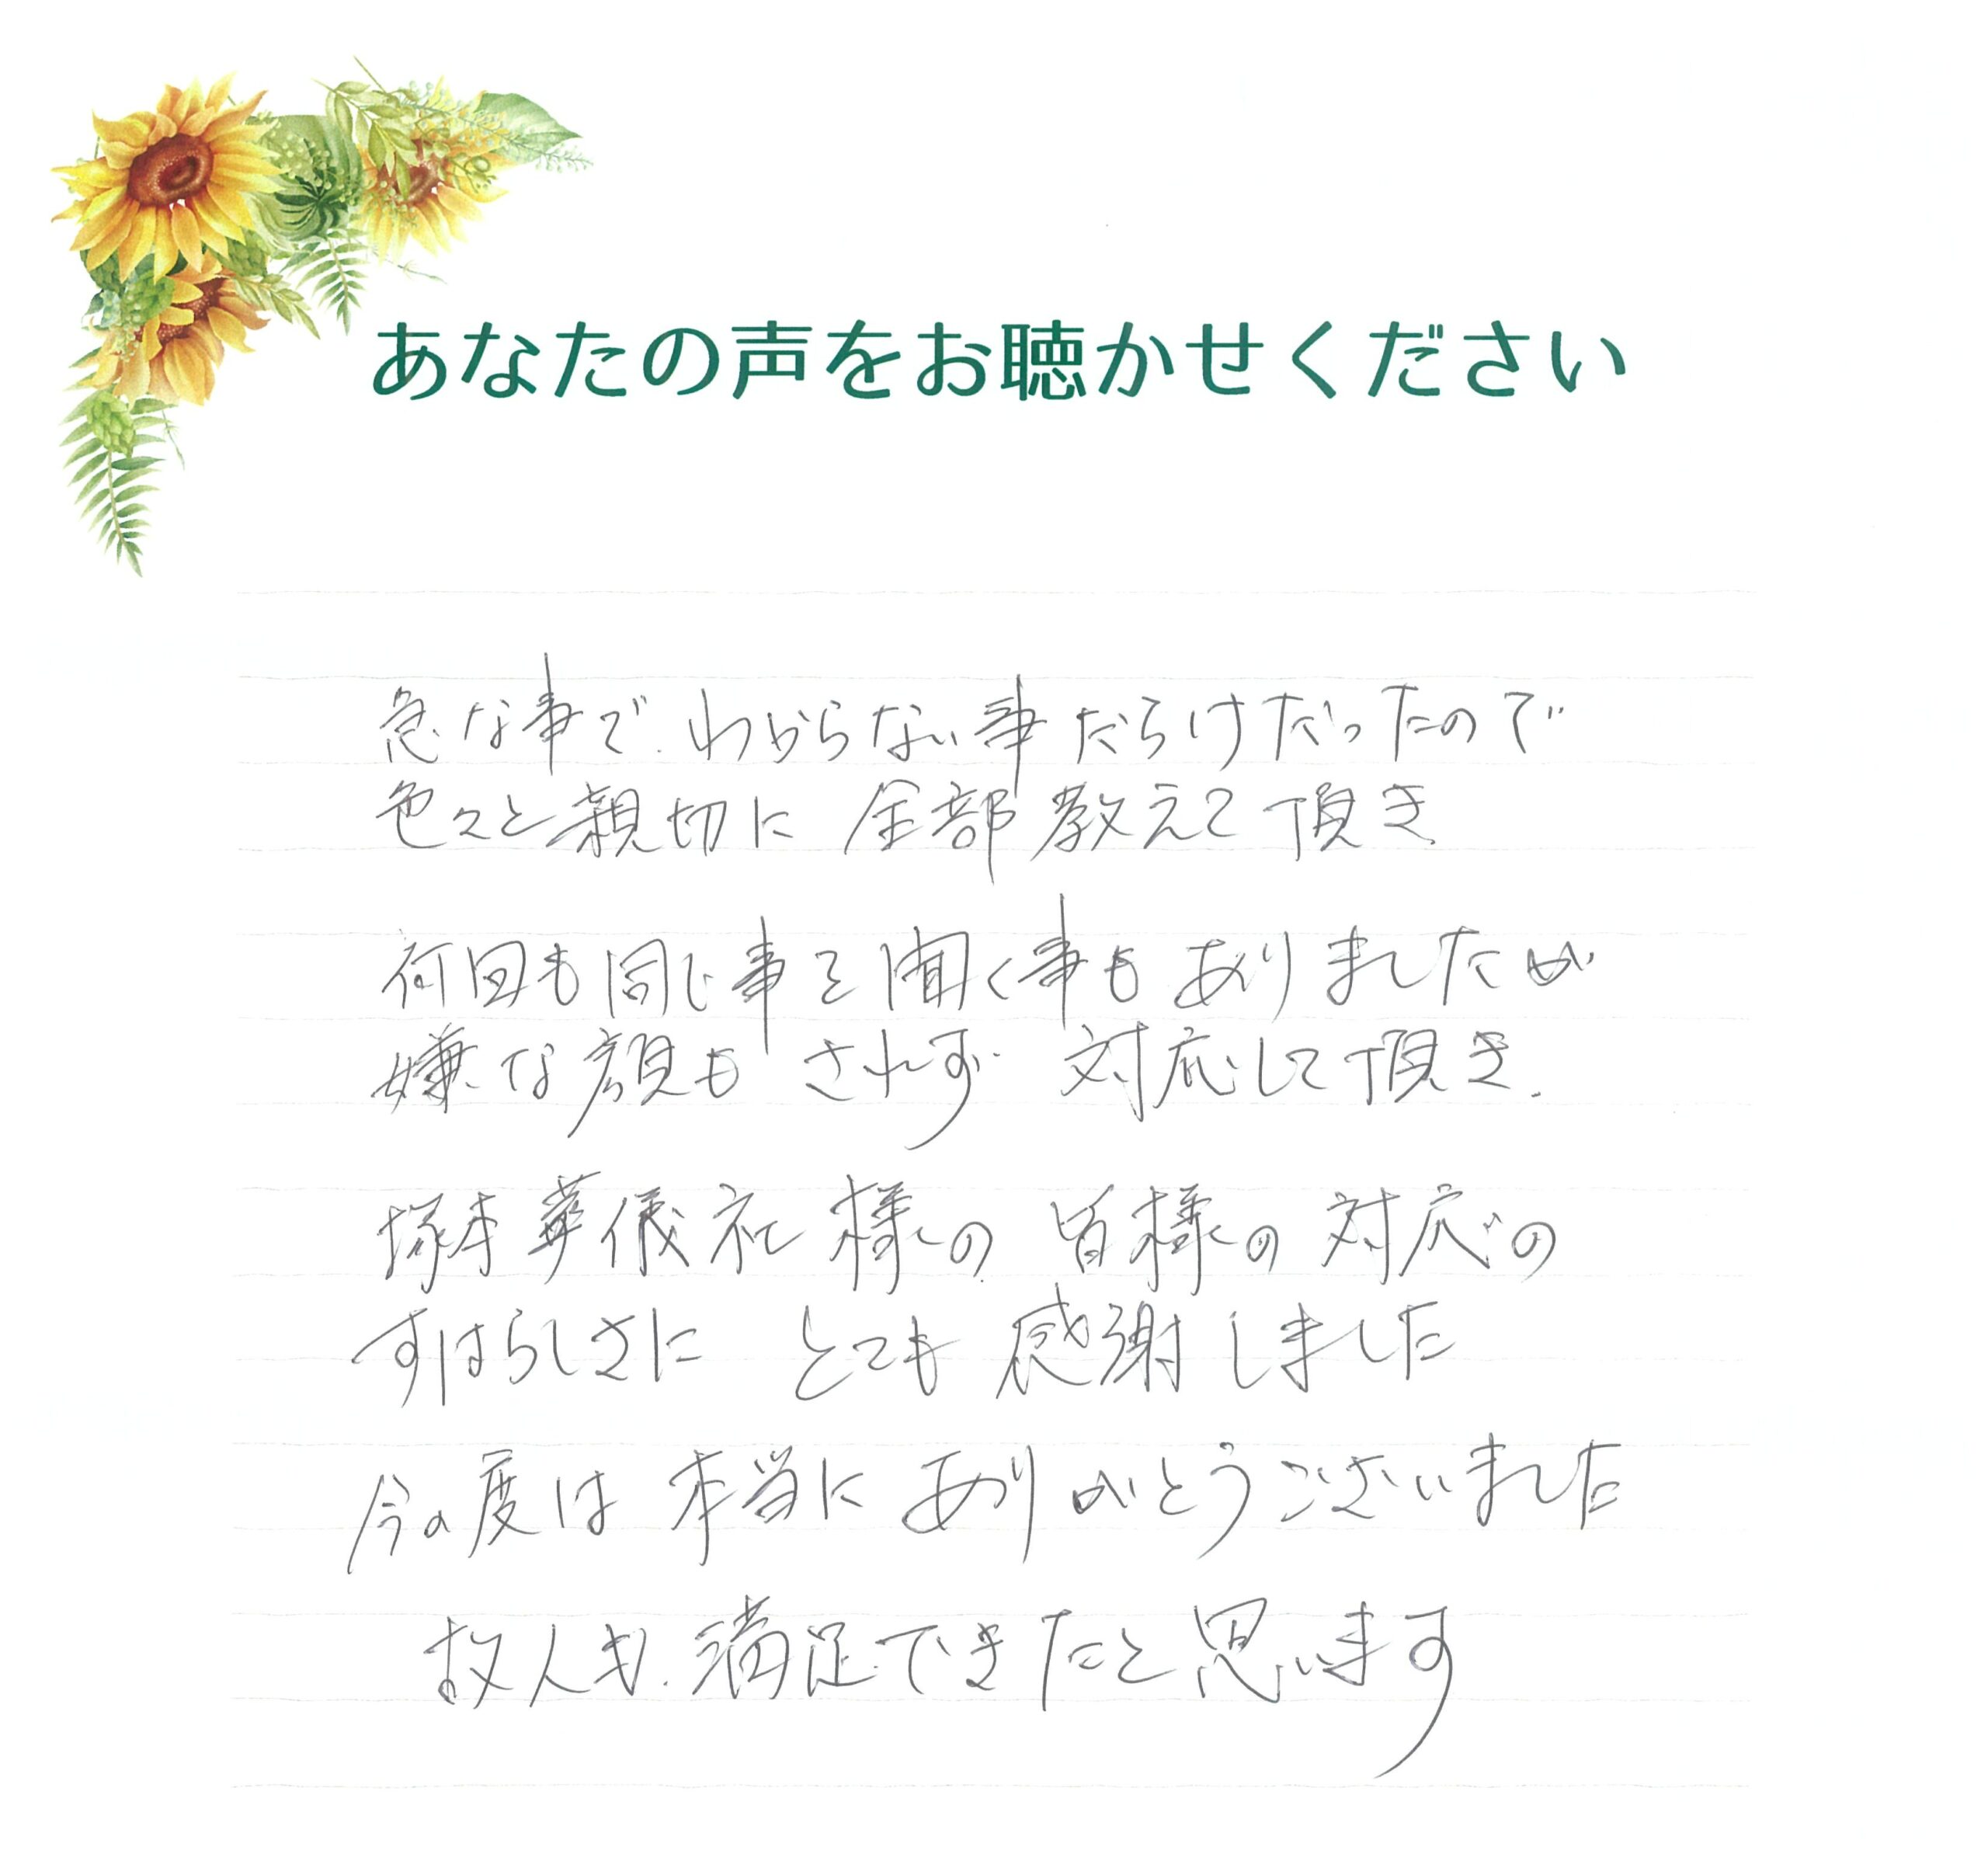 あなたの声をお聴かせください
急な事で、わからない事だらけだったので
色々と親切に 全部教えて頂き
何回も同じ事を聞く事もありましたが
嫌な顔もされず 対応して頂き、
塚本葬儀社様の 皆様の対応の
すばらしさに とても感謝しました
今の度は本当にありがとうございました
故人も、満足できたと思います